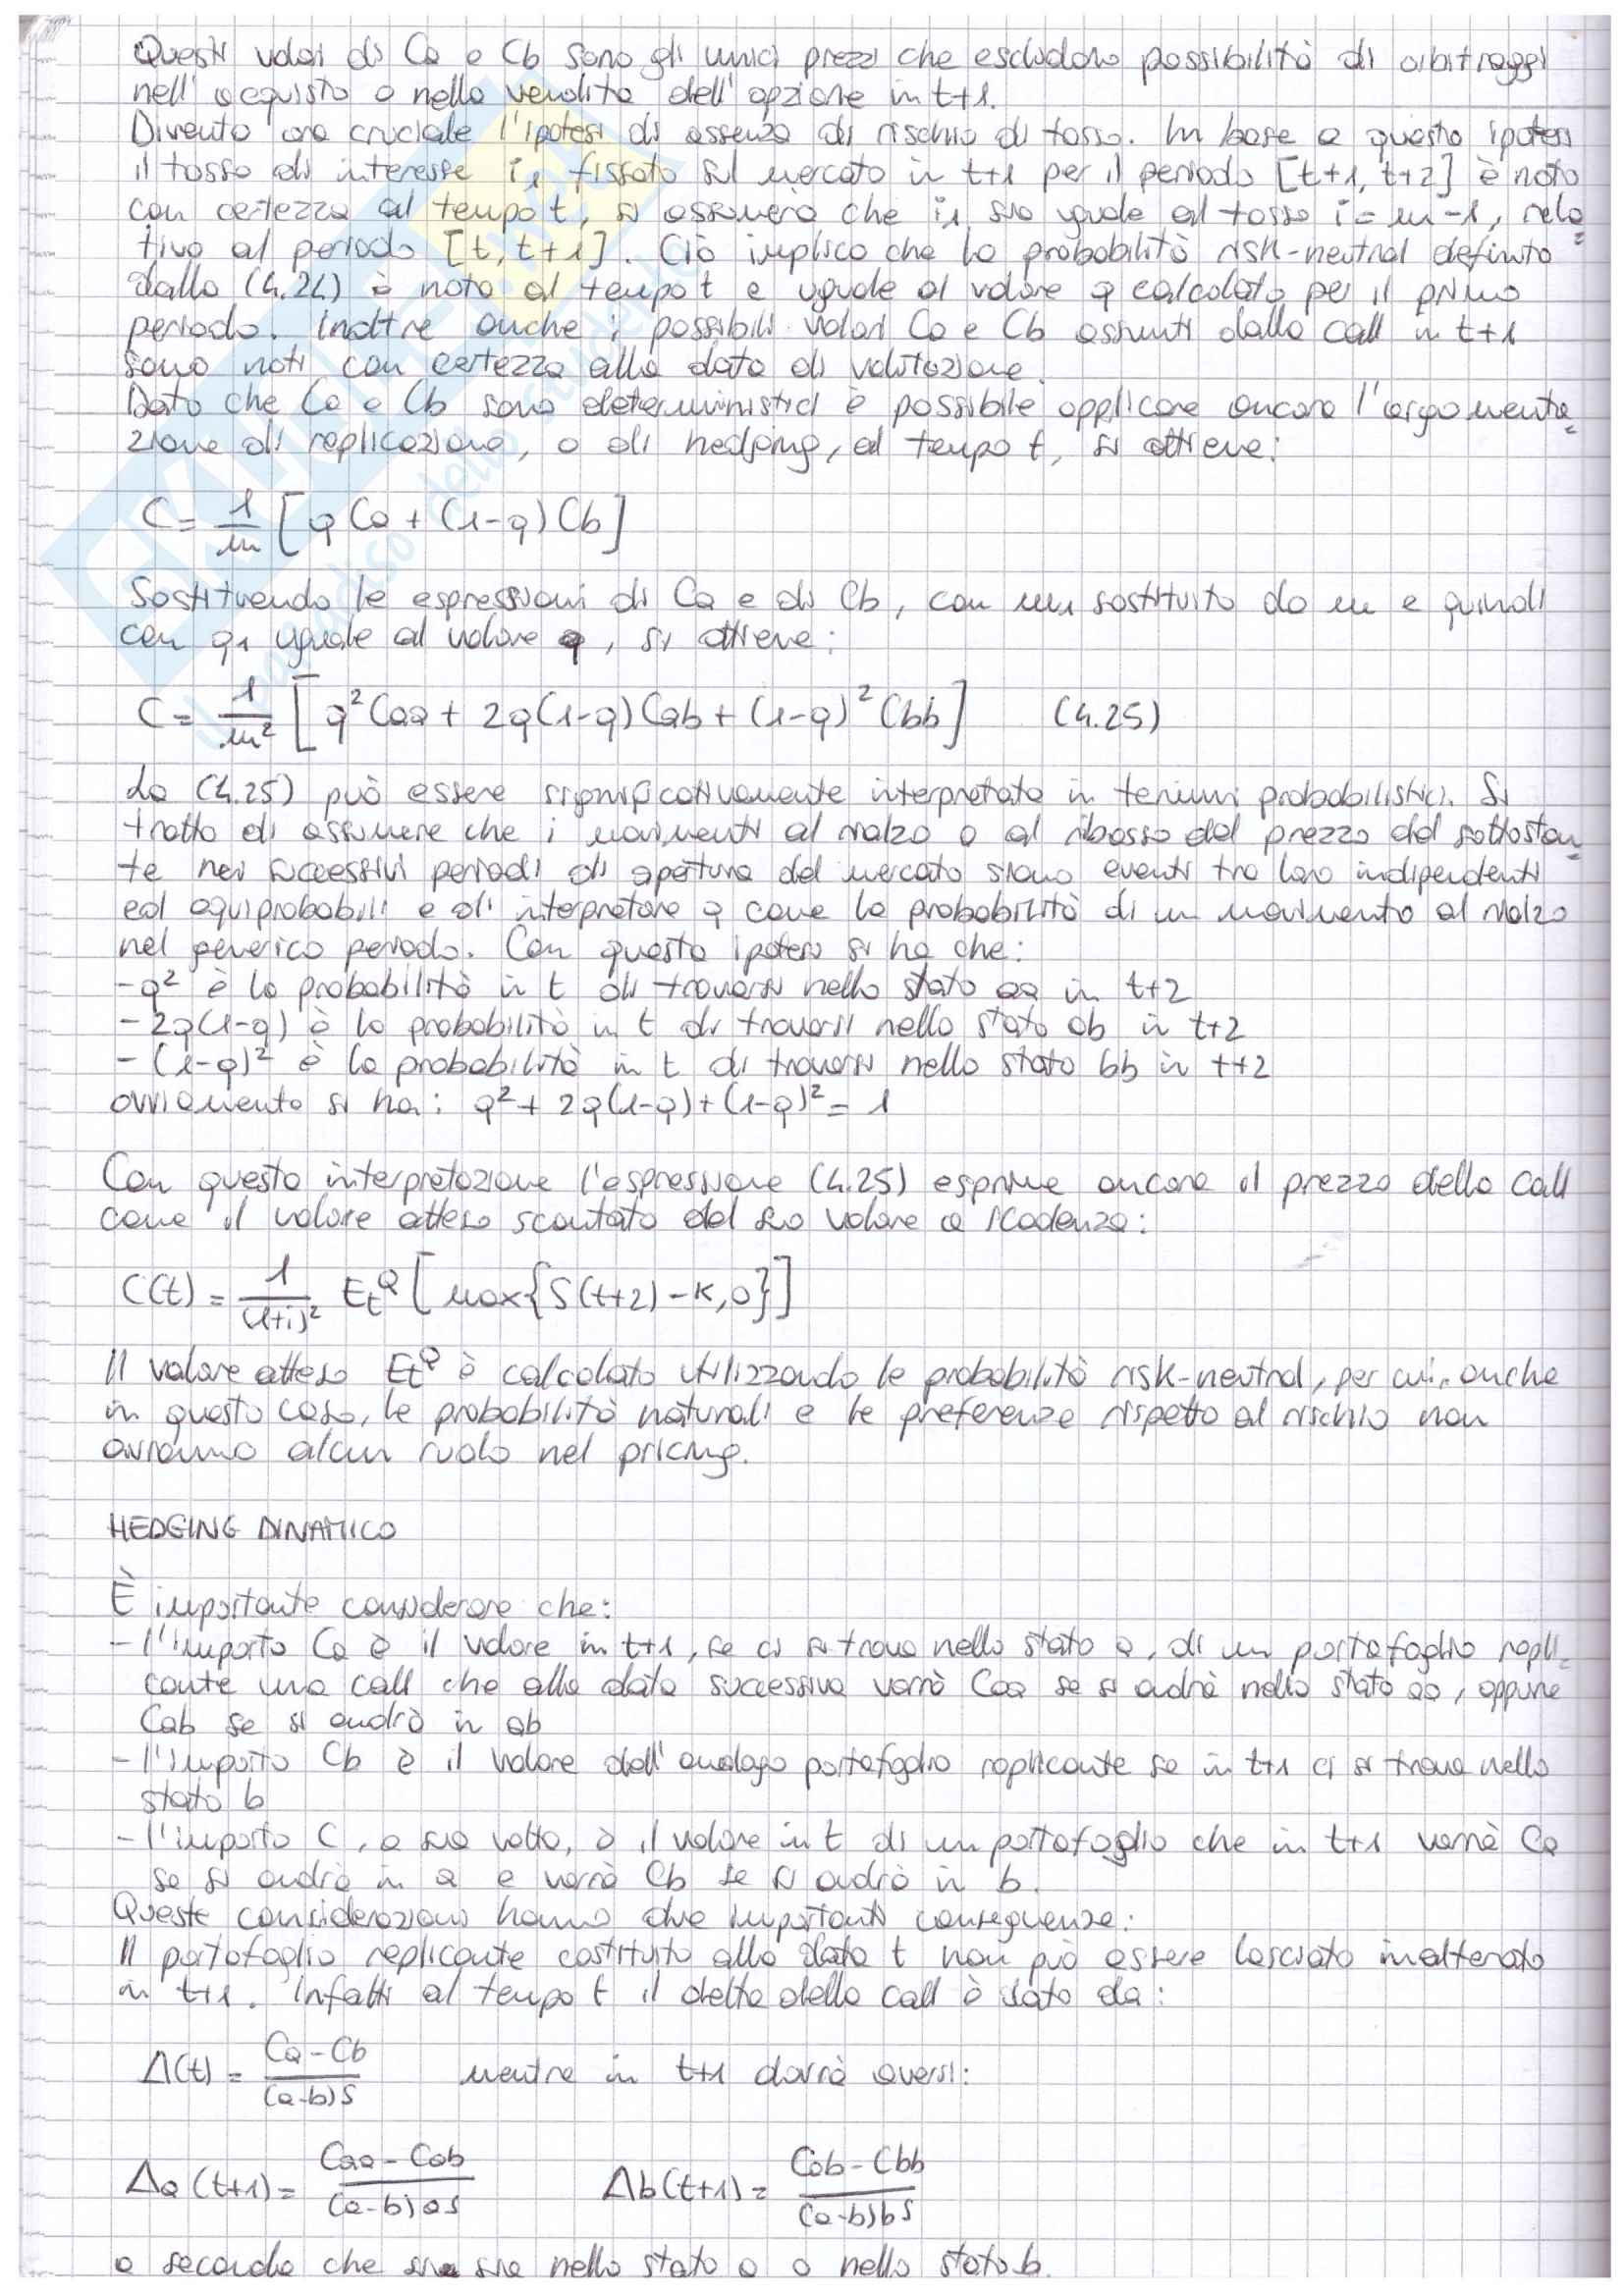 Questi valori di Ca e Cb sono gli unici prezzi che escludono possibilità di arbitraggi
nell'acquisto o nella vendita dell'opzione in t+1.
Diventa ora cruciale l'ipotesi di assenza di rischio di tasso. In base a questa ipotesi
il tasso di interesse i₁ fissato sul mercato in t+1 per il periodo [t+1, t+2] è noto
con certezza al tempo t, si assumerà che i₁ sia uguale al tasso i = m-1, rela
tivo al periodo [t, t+1]. Ciò implica che la probabilità risk-neutral definita
dalla (4.24) è nota al tempo t e uguale al valore q calcolato per il primo
periodo. Inoltre anche i possibili valori Ca e Cb assunti dalla call in t+1
sono noti con certezza alla data di valutazione.
Dato che Ca e Cb sono deterministici è possibile applicare ancora l'argomenta=
zione di replicazione, o di hedging, al tempo t, si ottiene:
C = 1/m [q Ca + (1-q) Cb]
Sostituendo le espressioni di Ca e di Cb, con m₁ sostituito da m e quindi
con q₁ uguale al valore q, si ottiene:
C = 1/m² [q² Caa + 2q(1-q) Cab + (1-q)² Cbb] (4.25)
La (4.25) può essere significativamente interpretata in termini probabilistici. Si
tratta di assumere che i movimenti al rialzo o al ribasso del prezzo del sottostan=
te nei successivi periodi di apertura del mercato siano eventi tra loro indipendenti
ed equiprobabili e di interpretare q come la probabilità di un movimento al rialzo
nel generico periodo. Con questa ipotesi si ha che:
- q² è la probabilità in t di trovarsi nello stato aa in t+2
- 2q(1-q) è la probabilità in t di trovarsi nello stato ab in t+2
- (1-q)² è la probabilità in t di trovarsi nello stato bb in t+2
ovviamente si ha: q² + 2q(1-q) + (1-q)² = 1
Con questa interpretazione l'espressione (4.25) esprime ancora il prezzo della call
come il valore atteso scontato del suo valore a scadenza:
C(t) = 1/(1+i)² Et^Q [max{S(t+2) - K, 0}]
Il valore atteso Et^Q è calcolato utilizzando le probabilità risk-neutral, per cui, anche
in questo caso, le probabilità naturali e le preferenze rispetto al rischio non
avranno alcun ruolo nel pricing.
HEDGING DINAMICO
È importante considerare che:
- l'importo Ca è il valore in t+1, se ci si trova nello stato a, di un portafoglio repli=
cante una call che alla data successiva varrà Caa se si andrà nello stato aa, oppure
Cab se si andrà in ab
- l'importo Cb è il valore dell'analogo portafoglio replicante se in t+1 ci si trova nello
stato b
- l'importo C, a sua volta, è il valore in t di un portafoglio che in t+1 varrà Ca
se si andrà in a e varrà Cb se si andrà in b.
Queste considerazioni hanno due importanti conseguenze:
Il portafoglio replicante costituito alla data t non può essere lasciato inalterato
in t+1. Infatti al tempo t il delta della call è dato da:
Δ(t) = (Ca - Cb)/((a-b)S) mentre in t+1 dovrà aversi:
Δa(t+1) = (Caa - Cab)/((a-b)aS) Δb(t+1) = (Cab - Cbb)/((a-b)bS)
a seconda che sia nello stato a o nello stato b.